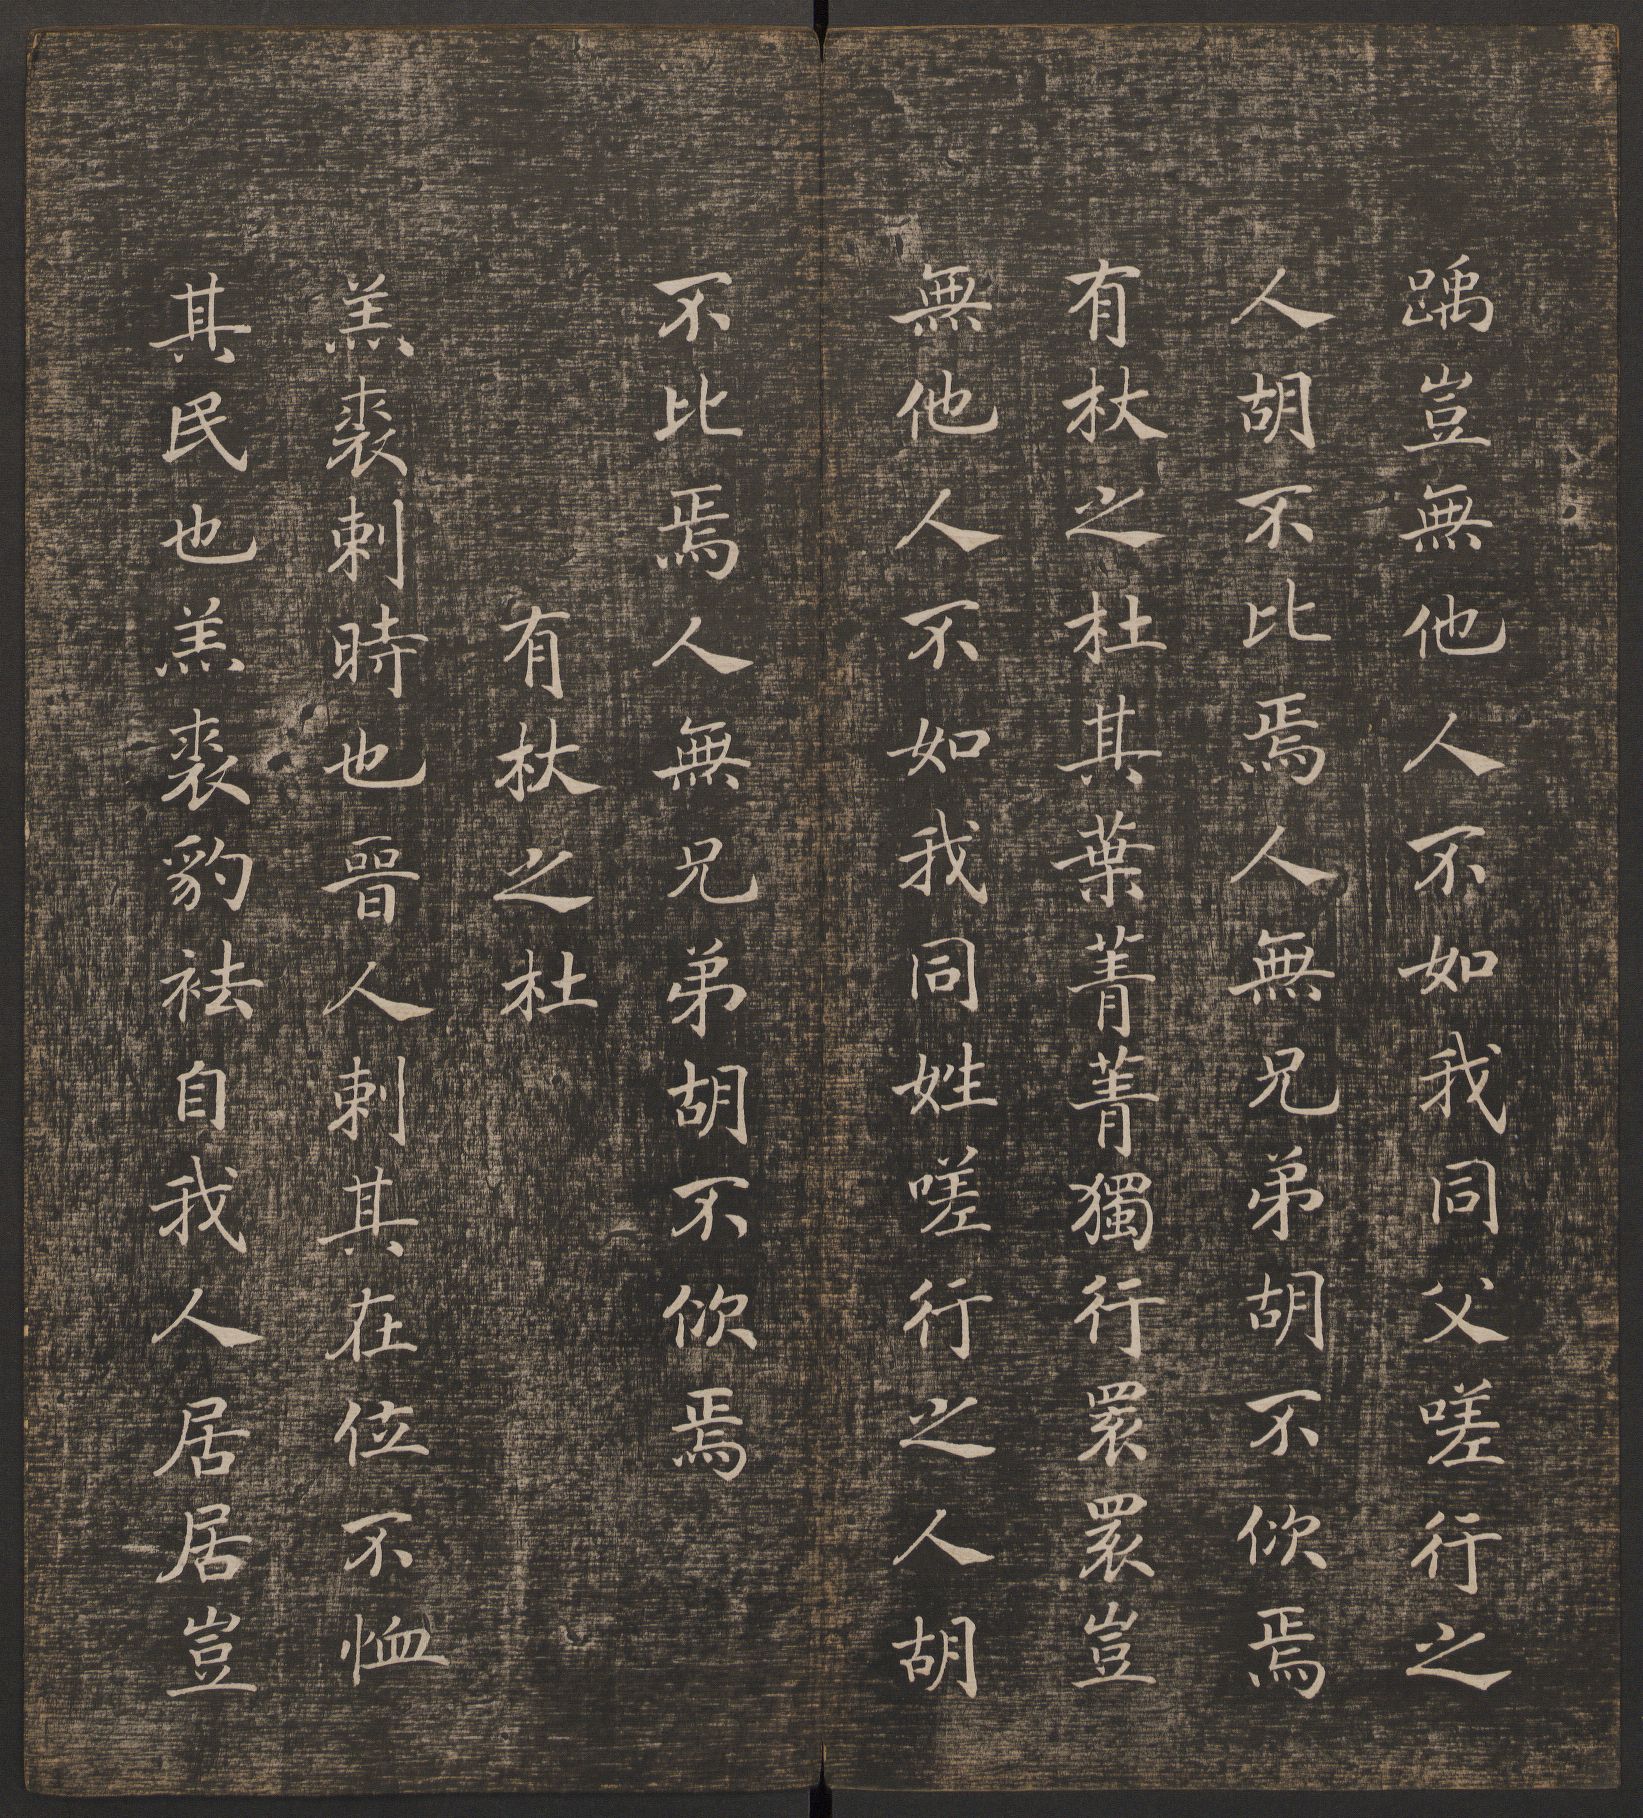 踽豈無他人不如我同父嗟行之
人胡不比焉人無兄弟胡不佽焉
有杕之杜其葉菁菁獨行睘睘豈
無他人不如我同姓嗟行之人胡
不比焉人無兄弟胡不佽焉
有杕之杜
羔裘刺時也晉人刺其在位不恤
其民也羔裘豹袪自我人居居豈